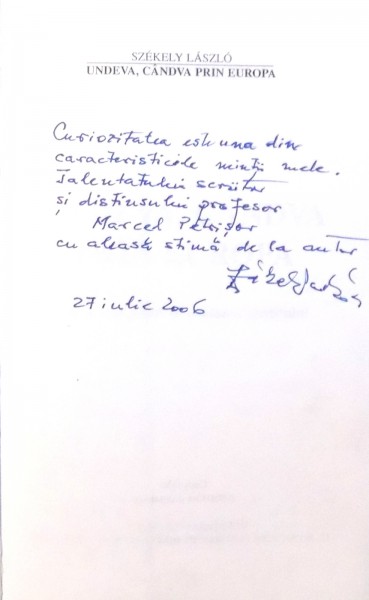 SZÉKELY LÁSZLÓ
UNDEVA, CÂNDVA PRIN EUROPA
Curiozitatea este una din
caracteristicile minții mele.
Talentatului scriitor
și distinsului profesor
Marcel Petrișor
cu aleasă stimă de la autor
Székely László
27 iulie 2006